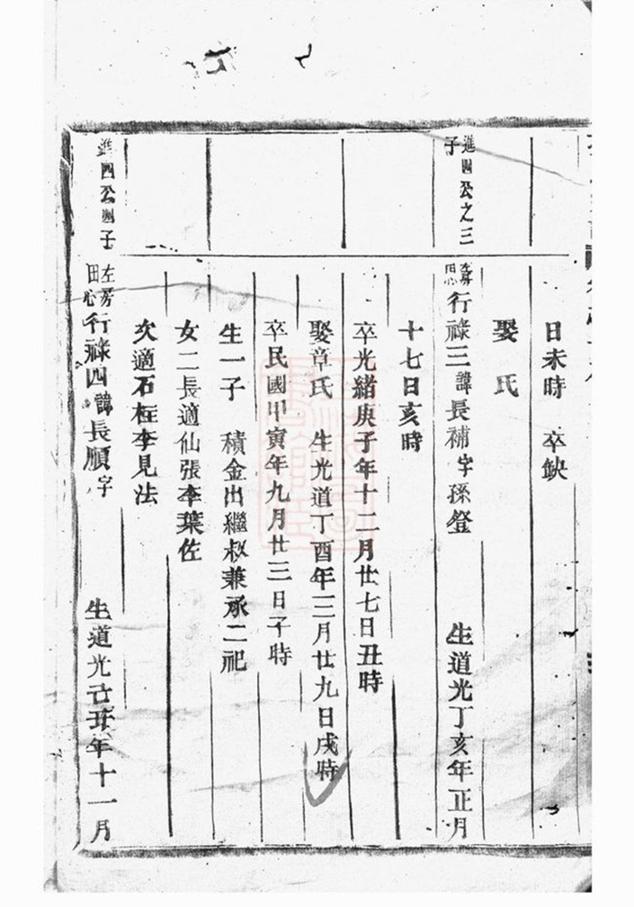 日未時　卒缺
娶氏
進四公之三子
行祿三諱長補字孫登　生道光丁亥年正月
十七日亥時
卒光緒庚子年十二月廿七日丑時
娶章氏　生光道丁酉年三月廿九日戌時
卒民國甲寅年九月廿三日子時
生一子　積金出繼叔兼承二祀
女二長適仙張李葉佐
次適石枉李見法
進四公四子
左房田心行祿四諱長順字　生道光己丑年十一月